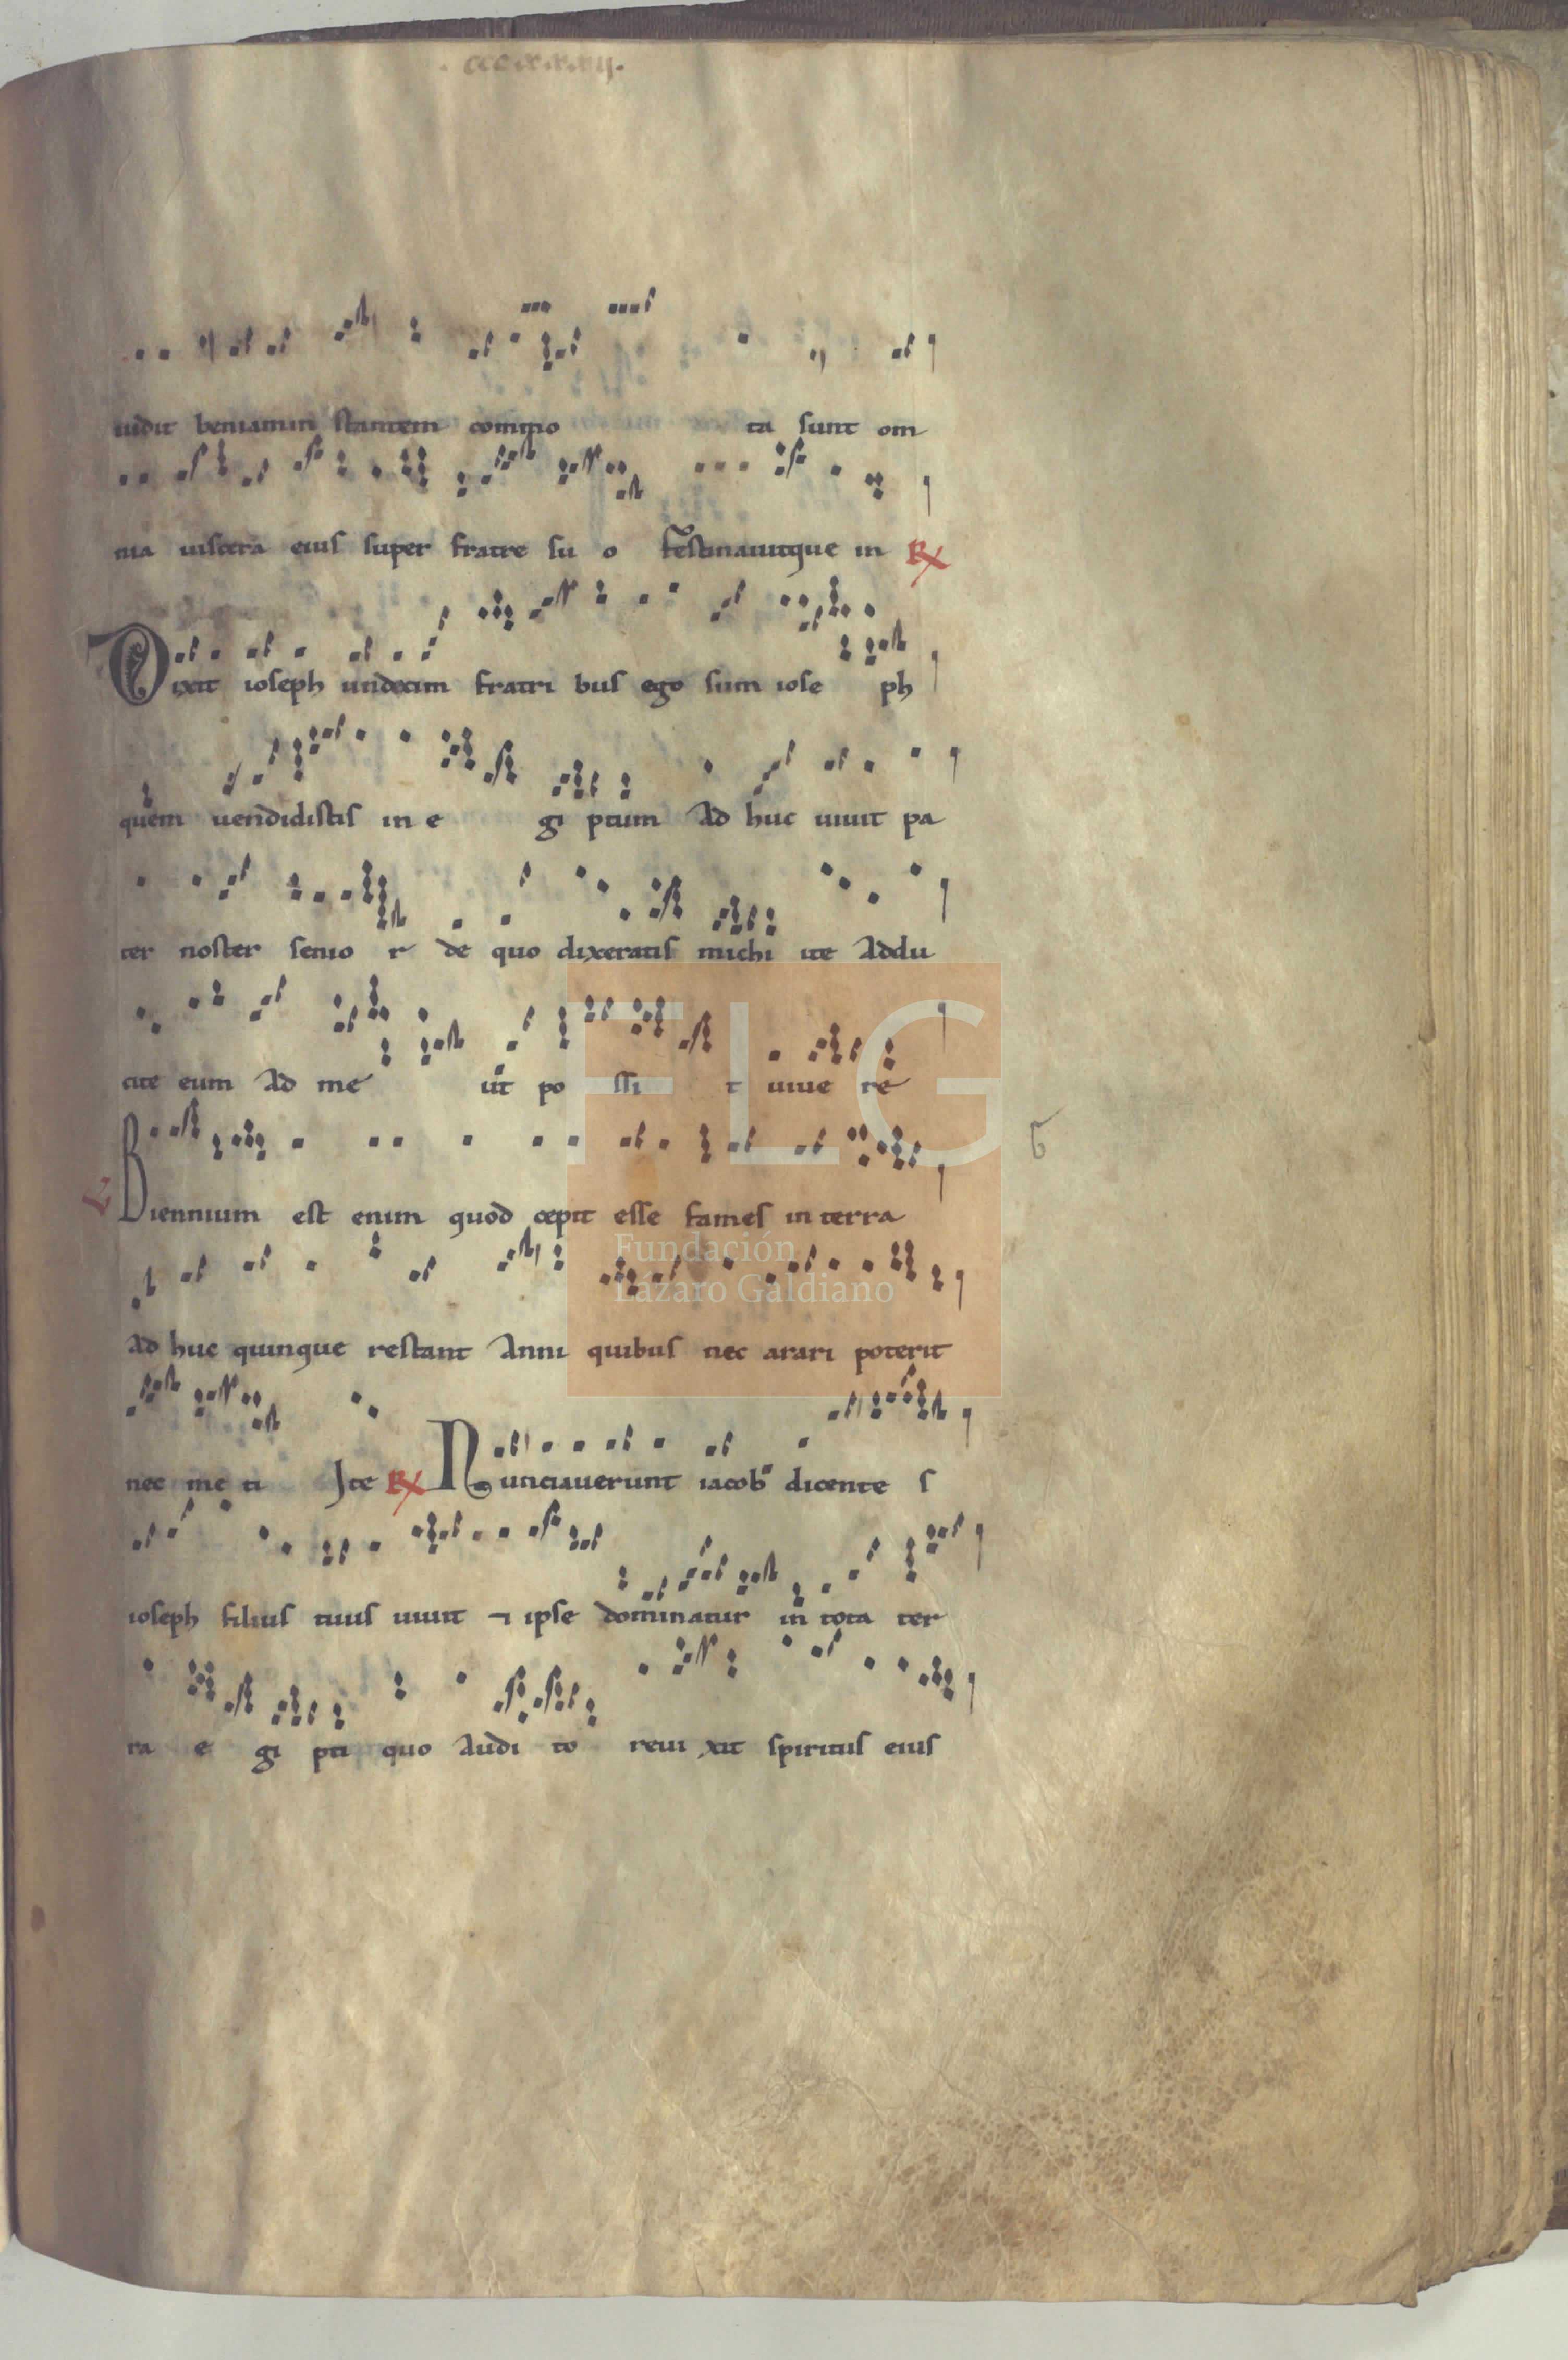 uidit beniamin stantem commo ta sunt om
nia uiscera eius super fratre su o festinauitque in ℟
Dixit ioseph undecim fratri bus ego sum iose ph
quem uendidistis in e gi ptum Ad huc uiuit pa
ter noster senio r de quo dixeratis michi ite Addu
cite eum Ad me ut po ssi t uiue re
Biennium est enim quod cepit esse fames in terra
Ad huc quinque restant Anni quibus nec arari poterit
nec me ti Ite ℟ Nunciauerunt iacob dicente s
ioseph filius tuus uiuit ⁊ ipse dominatur in tota ter
ra e gi pti quo Audi to reui xit spiritus eius
FLG
Fundación
Lázaro Galdiano